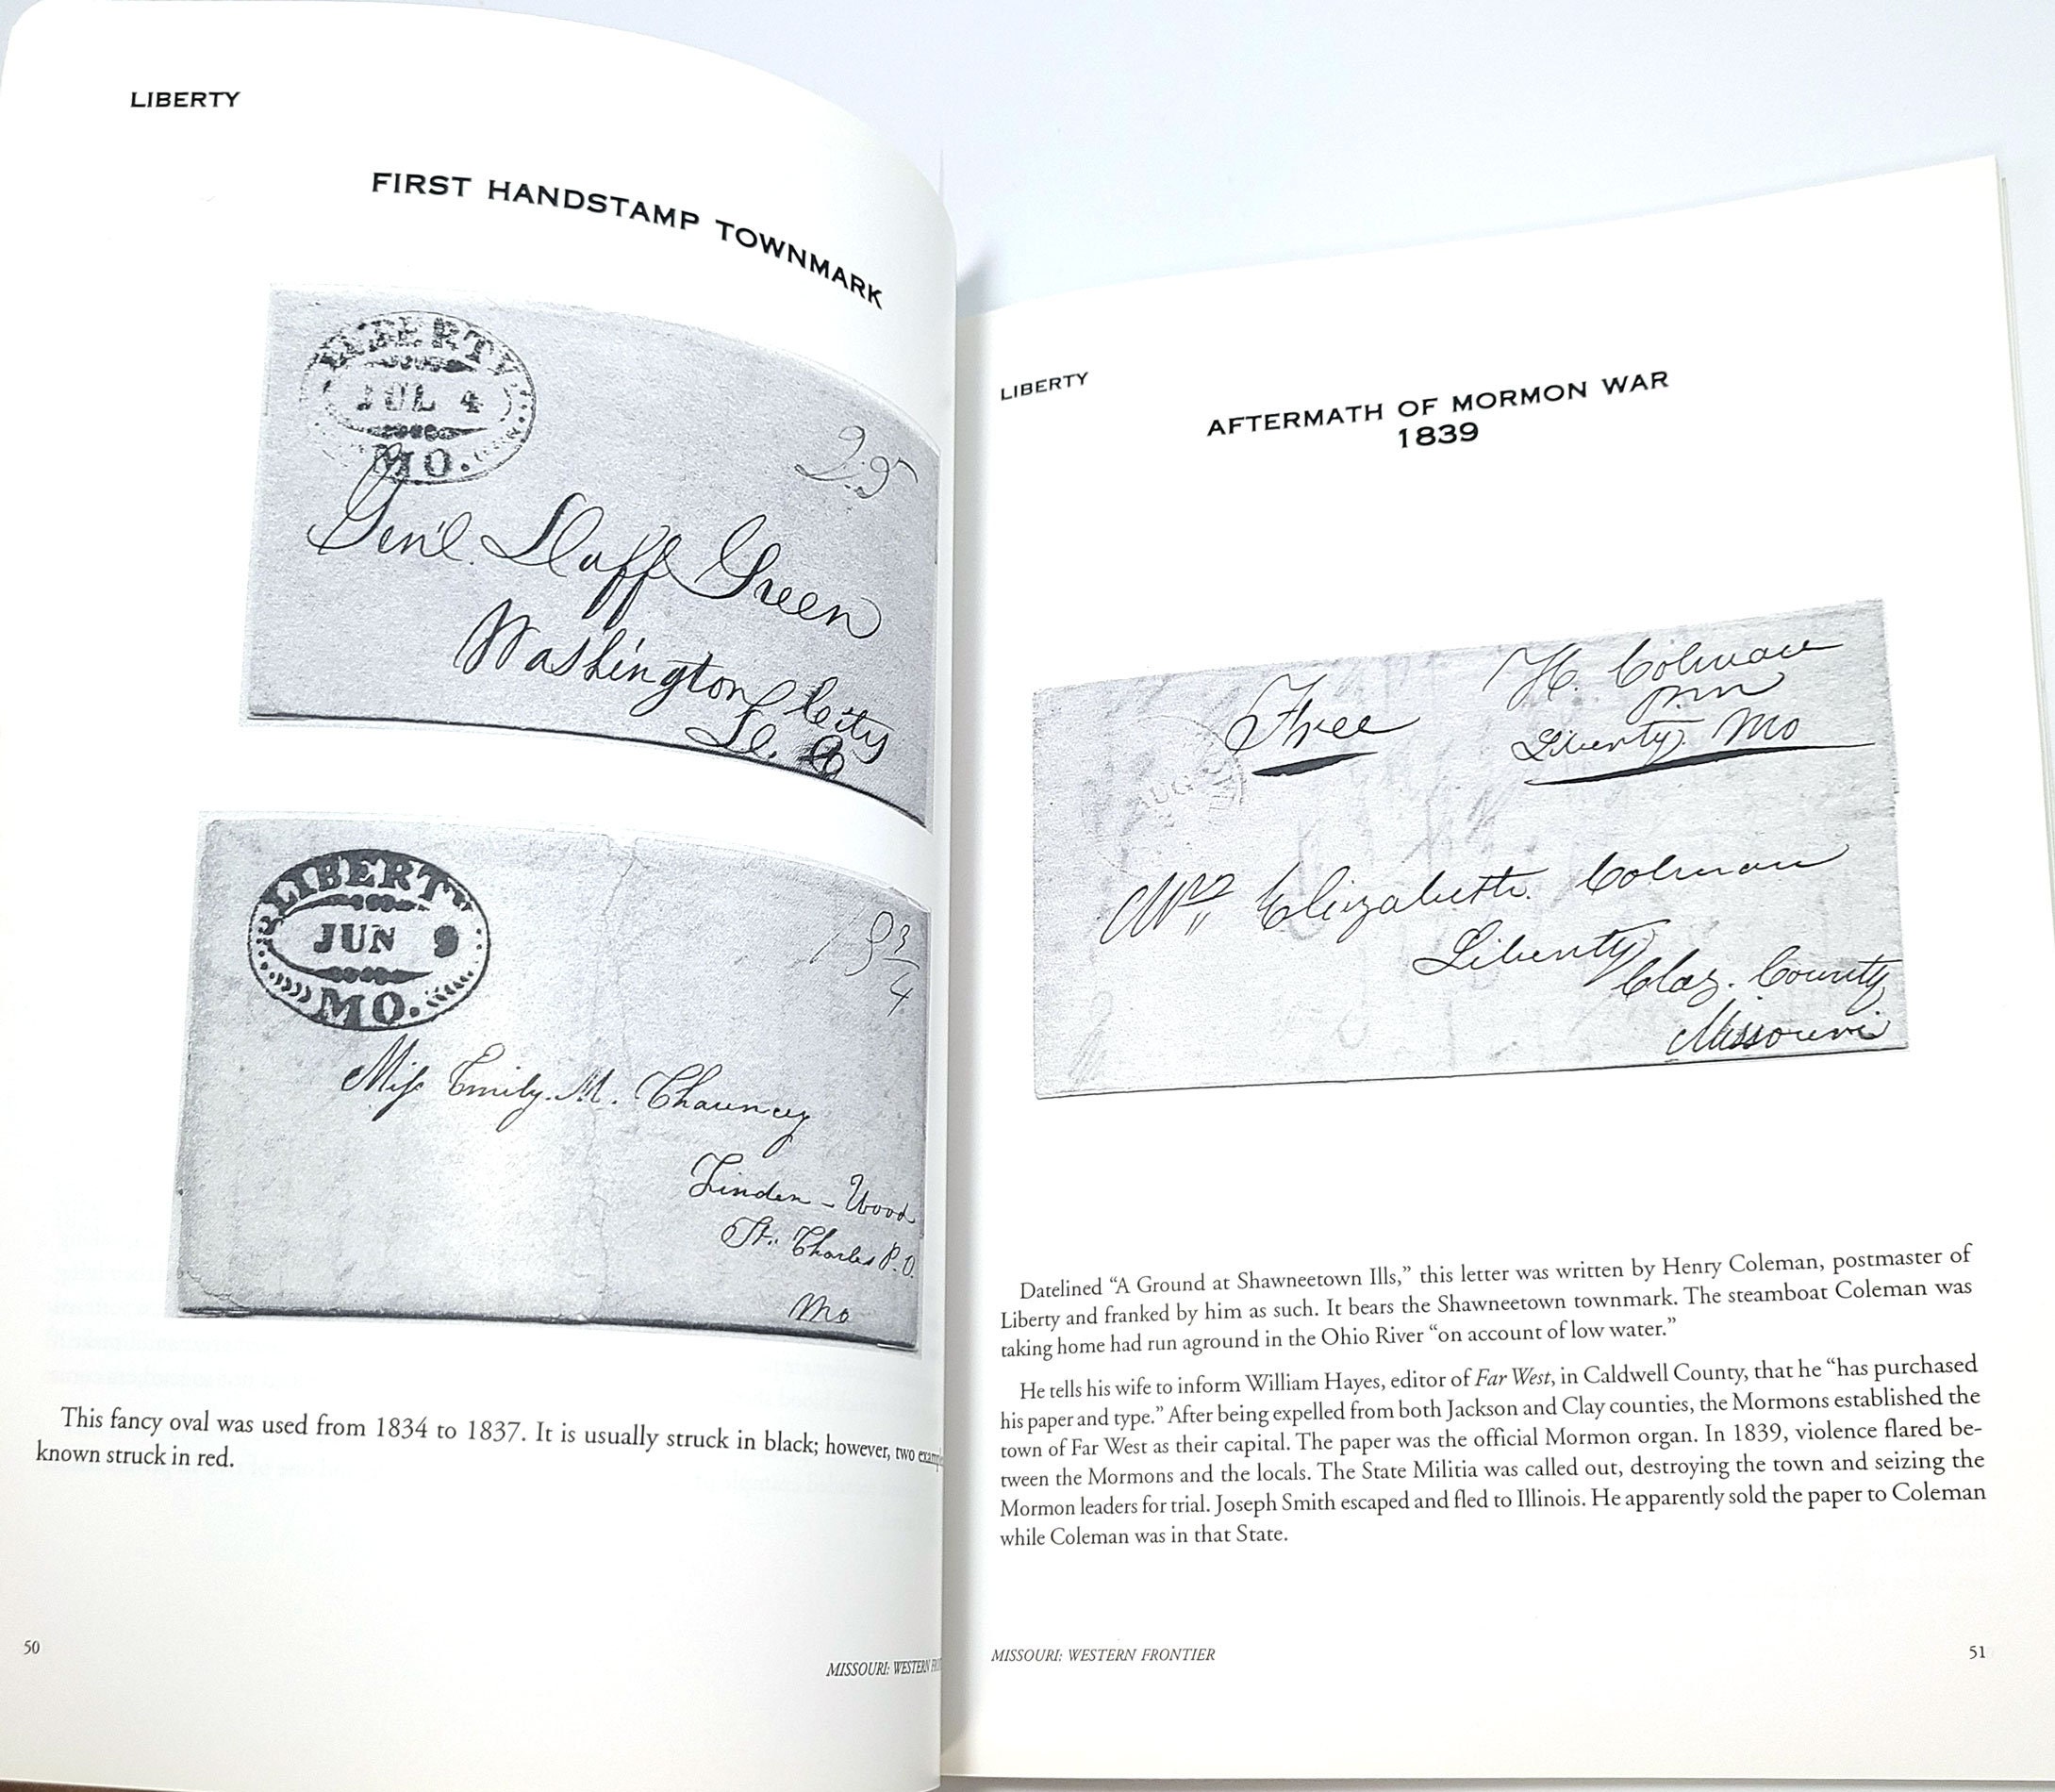 LIBERTY
FIRST HANDSTAMP TOWNMARK
LIBERTY
JUL 4
MO.
25
Gen'l. Duff Green
Washington City
D. C.
LIBERTY
JUN 9
MO.
18 3/4
Miss Emily. M. Chauncey
Linden - Wood
St. Charles P. O.
Mo
This fancy oval was used from 1834 to 1837. It is usually struck in black; however, two
known struck in red.
50
MISSOURI: WESTERN
LIBERTY
AFTERMATH OF MORMON WAR
1839
AUG
Free
H. Coleman
pm
Liberty Mo
Mrs Elizabeth Coleman
Liberty
Clay. County
Missouri
Datelined “A Ground at Shawneetown Ills,” this letter was written by Henry Coleman, postmaster of
Liberty and franked by him as such. It bears the Shawneetown townmark. The steamboat Coleman was
taking home had run aground in the Ohio River “on account of low water.”
He tells his wife to inform William Hayes, editor of Far West, in Caldwell County, that he “has purchased
his paper and type.” After being expelled from both Jackson and Clay counties, the Mormons established the
town of Far West as their capital. The paper was the official Mormon organ. In 1839, violence flared be-
tween the Mormons and the locals. The State Militia was called out, destroying the town and seizing the
Mormon leaders for trial. Joseph Smith escaped and fled to Illinois. He apparently sold the paper to Coleman
while Coleman was in that State.
MISSOURI: WESTERN FRONTIER
51